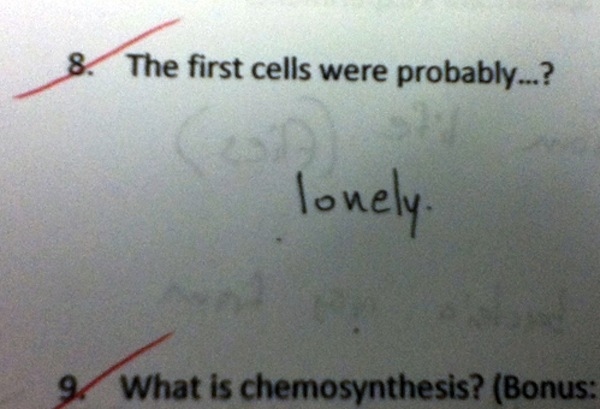 8. The first cells were probably...?
lonely.
9. What is chemosynthesis? (Bonus: